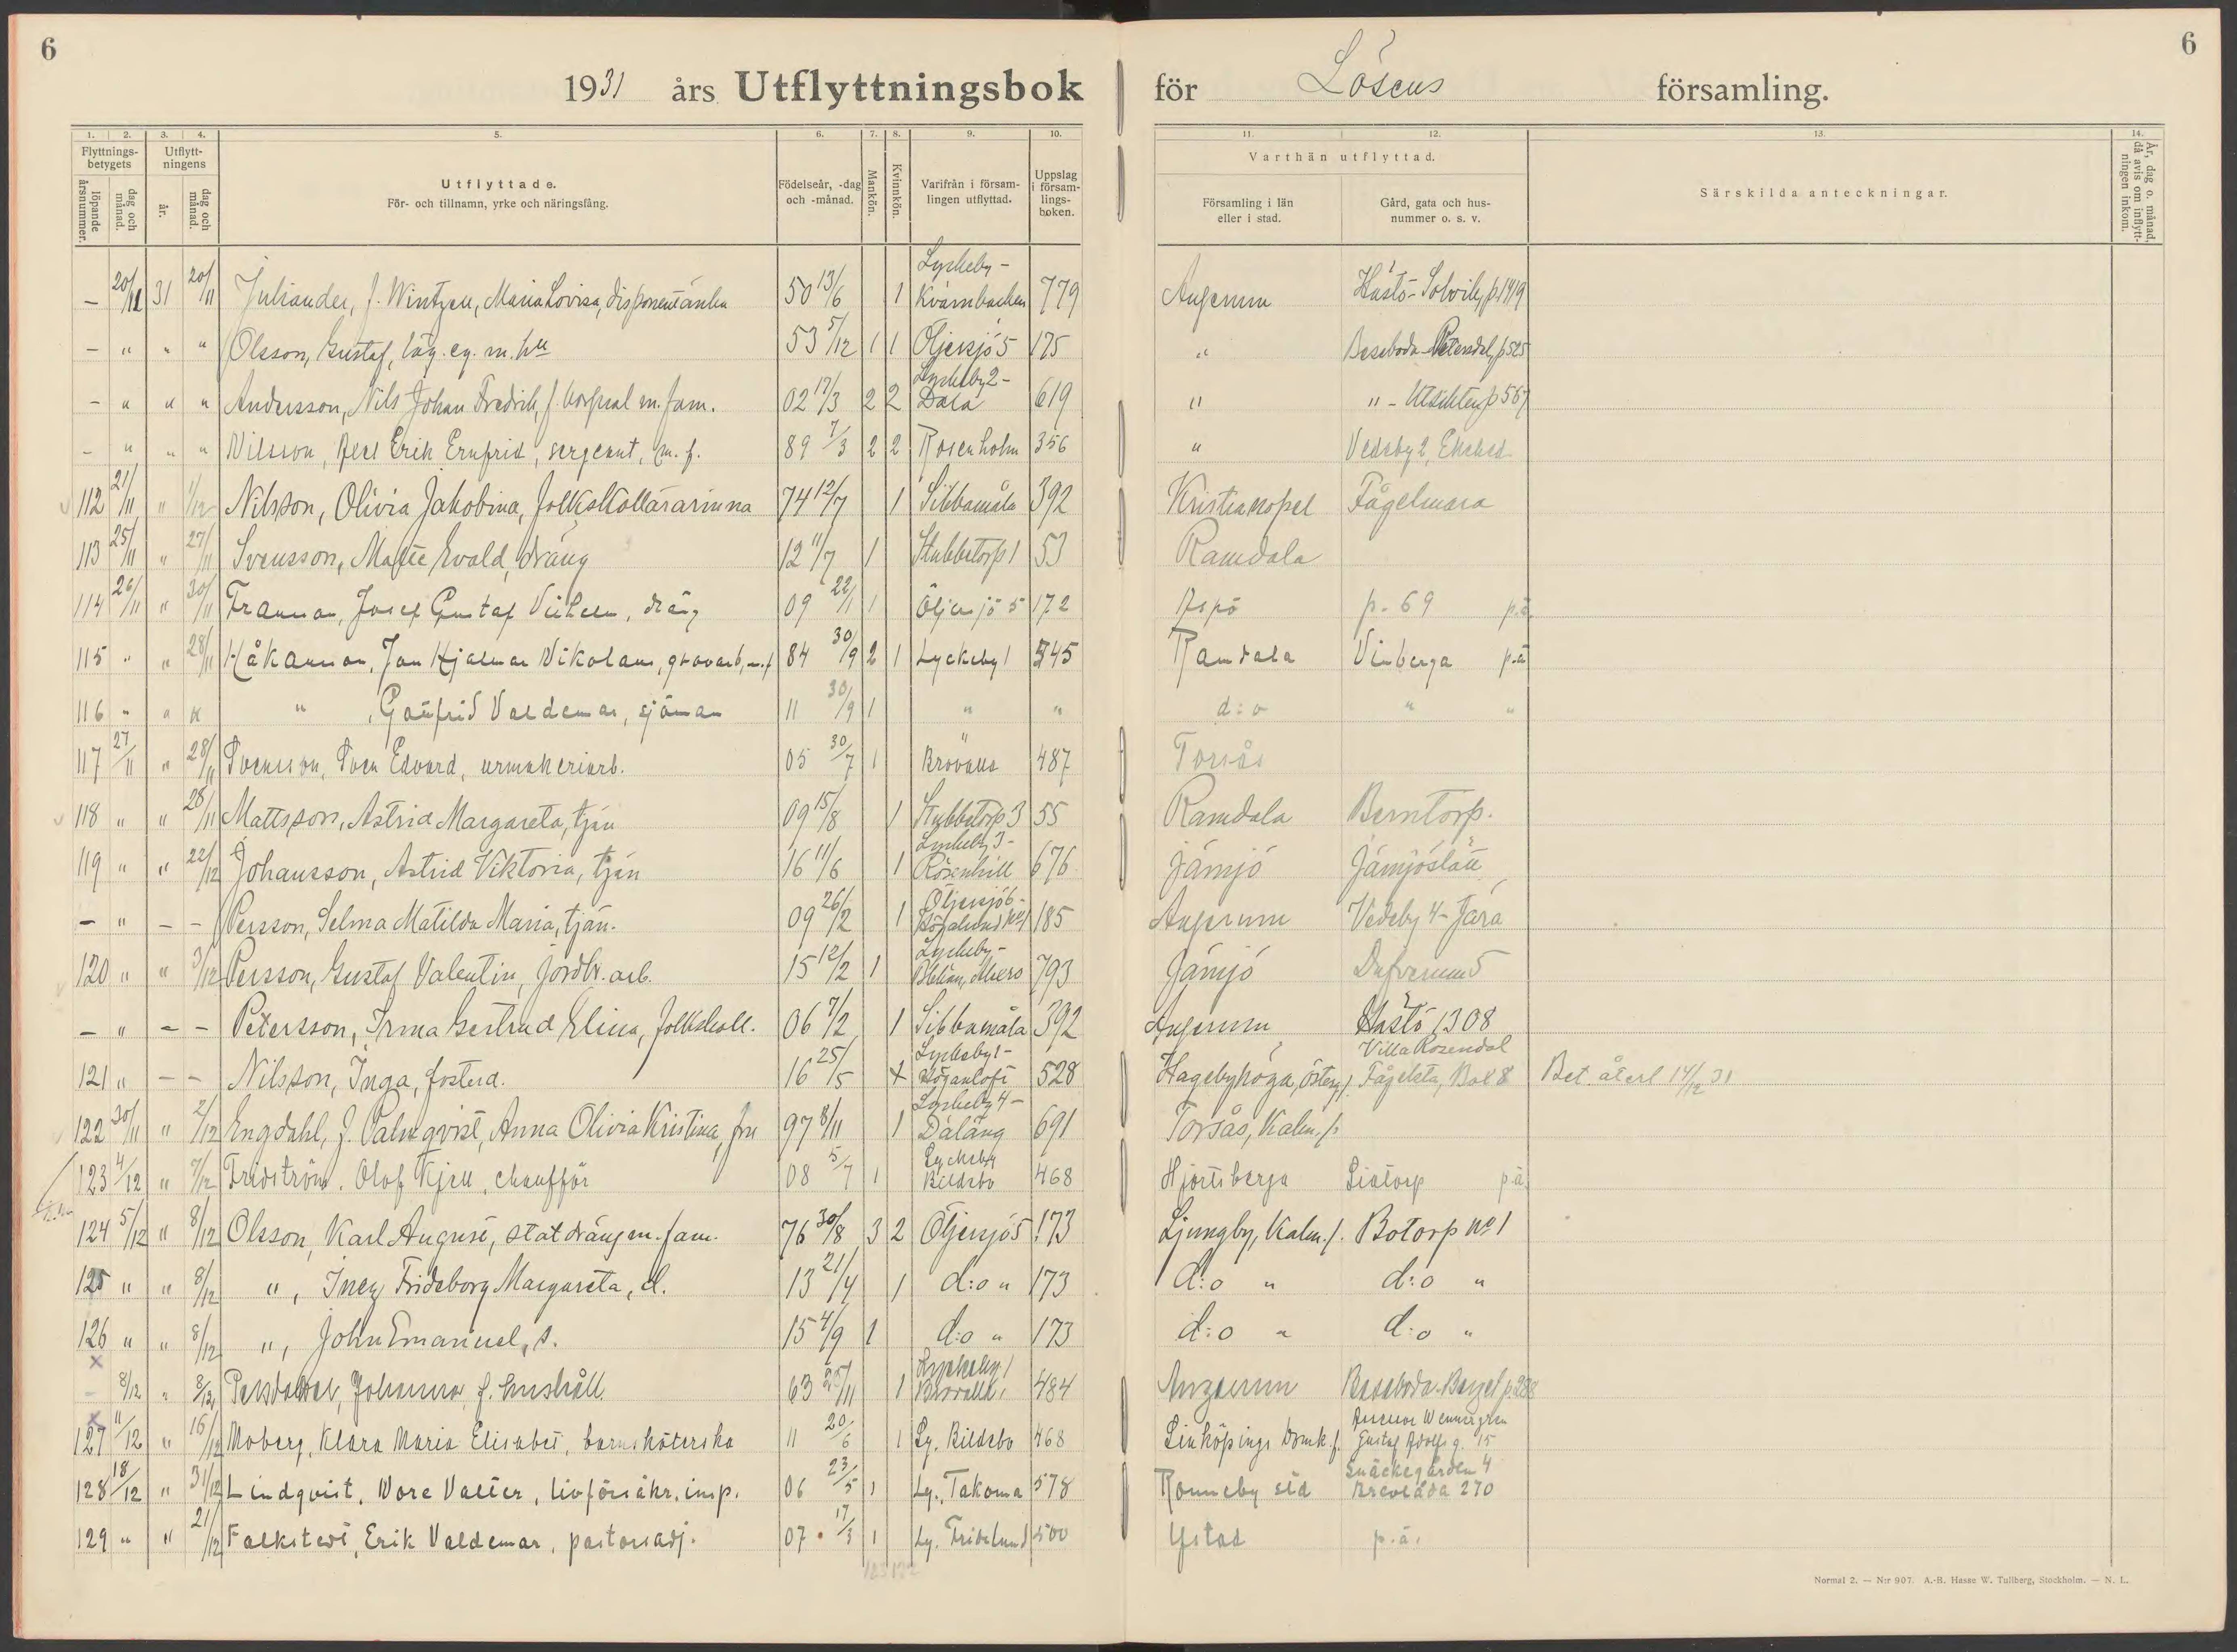 6
6
1931 års Utflyttningsbok för Lösens församling.
1. 2. 3. 4. 5. 6. 7. 8. 9. 10. 11. 12. 13. 14.
Flyttnings-betygets
löpande årsnummer.
dag och månad.
Utflytt-ningens
år.
dag och månad.
Utflyttade.
För- och tillnamn, yrke och näringsfång.
Födelseår, -dag och -månad.
Mankön.
Kvinnkön.
Varifrån i försam-lingen utflyttad.
Uppslag i försam-lings-boken.
Varthän utflyttad.
Församling i län eller i stad.
Gård, gata och hus-nummer o. s. v.
Särskilda anteckningar.
År, dag o. månad, då avis om inflytt-ningen inkom.
– 20/11 31 20/11 Juliander, f. Wintzen, Maria Lovisa, disponentänka 50 13/6 1 Lyckeby- Kvarnbacken 779 Augerum Hästö-Solvik, p. 1419
– " " " Olsson, Gustaf, läg. eg. m. hu 53 5/12 1 1 Öljersjö 5 175 " Baseboda Petersdal, p 525
– " " " Andersson, Nils Johan Fredrik, f. korpral m. fam. 02 17/3 2 2 Lyckeby 2 - Dala 619 " " - Utsikten p 567
– " " " Nilsson, Axel Erik Ernfrid, sergeant, m. f. 89 7/3 2 2 Rosenholm 356 " Vedeby 2, Ekebed
112 21/11 " 1/12 Nilsson, Olivia Jakobina, folkskollärarinna 74 12/7 1 Sibbamåla 392 Kristianopel Fågelmara
113 25/11 " 27/11 Svensson, Matte Evald, dräng 12 11/7 1 Stubbetorp 1 53 Ramdala
114 26/11 " 30/11 Fransson, Josef Gustaf Vilhelm, dräng 09 22/1 1 Öljersjö 5 172 Aspö p. 69 p.ä.
115 " " 28/11 Håkansson, Jon Hjalmar Nikolaus, grovarb, m. f 84 30/9 2 1 Lyckeby 1 545 Ramdala Vinberga p.ä
116 " " " " , Gotfrid Valdemar, sjöman 11 30/9 1 " " d:o " "
117 27/11 " 28/11 Svensson, Sven Edvard, urmakeriarb. 05 30/7 1 " Brovalla 487 Torsås
118 " " 28/11 Mattsson, Astrid Margareta, tjän 09 15/8 1 Stubbetorp 3 55 Ramdala Berntorp.
119 " " 22/12 Johansson, Astrid Viktoria, tjän 16 11/6 1 Lyckeby 3 - Rosenhill 676 Jämjö Jämjöslätt
– " – – Persson, Selma Matilda Maria, tjän. 09 26/2 1 Öljersjö 6 - Högalund No 1 185 Augerum Vedeby 4 - Jära
120 " " 3/12 Persson, Gustaf Valentin, jordbr. arb. 15 12/2 1 Lyckeby - 793 Jämjö Dufverum 5
– " – – Petersson, Irma Gertrud Elina, folkskoll. 06 7/2 1 Sibbamåla 392 Augerum Hästö 1308 Villa Rosendal
121 " – – Nilsson, Inga, fosterd. 16 25/5 + Lyckeby 1 - Höganloft 528 Hagebyhöga, Österg. l. Fågelsta, Box 8 Bet. återl 14/12 31
122 30/11 " 2/12 Engdahl, f. Palmqvist, Anna Olivia Kristina, fru 97 8/11 1 Lyckeby 4 - Daläng 691 Torsås, Kalm. l.
123 4/12 " 7/12 Fridström, Olof Kjell, chaufför 08 5/7 1 Lyckeby Bildsbo 468 Hjortsberga Listorp p.ä.
124 5/12 " 8/12 Olsson, Karl August, statdräng m. fam. 76 30/8 3 2 Öljersjö 5 173 Ljungby, Kalm. l. Botorp No 1
125 " " 8/12 ", Inez Frideborg Margareta, d. 13 21/4 1 d:o " 173 d:o " d:o "
126 " " 8/12 ", John Emanuel, s. 15 4/9 1 d:o " 173 d:o " d:o "
– 8/12 " 8/12 Persdotter, Johanna, f. hushåll. 63 25/11 1 Lyckeby 1 Brovalla 484 Augerum Baseboda-Berget p. 288
127 11/12 " 16/12 Moberg, Klara Maria Elisabet, barnsköterska 11 20/6 1 Ly. Bildsbo 468 Linköpings Domk. f. Wennergren Gustaf Adolfs g. 15
128 18/12 " 31/12 Lindqvist, Wore Valter, livförsäkr. insp. 06 23/5 1 Ly., Takoma 578 Ronneby std Snäckegården 4 270
129 " " 21/12 Falkstedt, Erik Valdemar, pastorsadj. 07 17/3 1 Ly. Fridelund 500 Ystad p.ä.
Normal 2. — N:r 907. A.-B. Hasse W. Tullberg, Stockholm. — N. L.